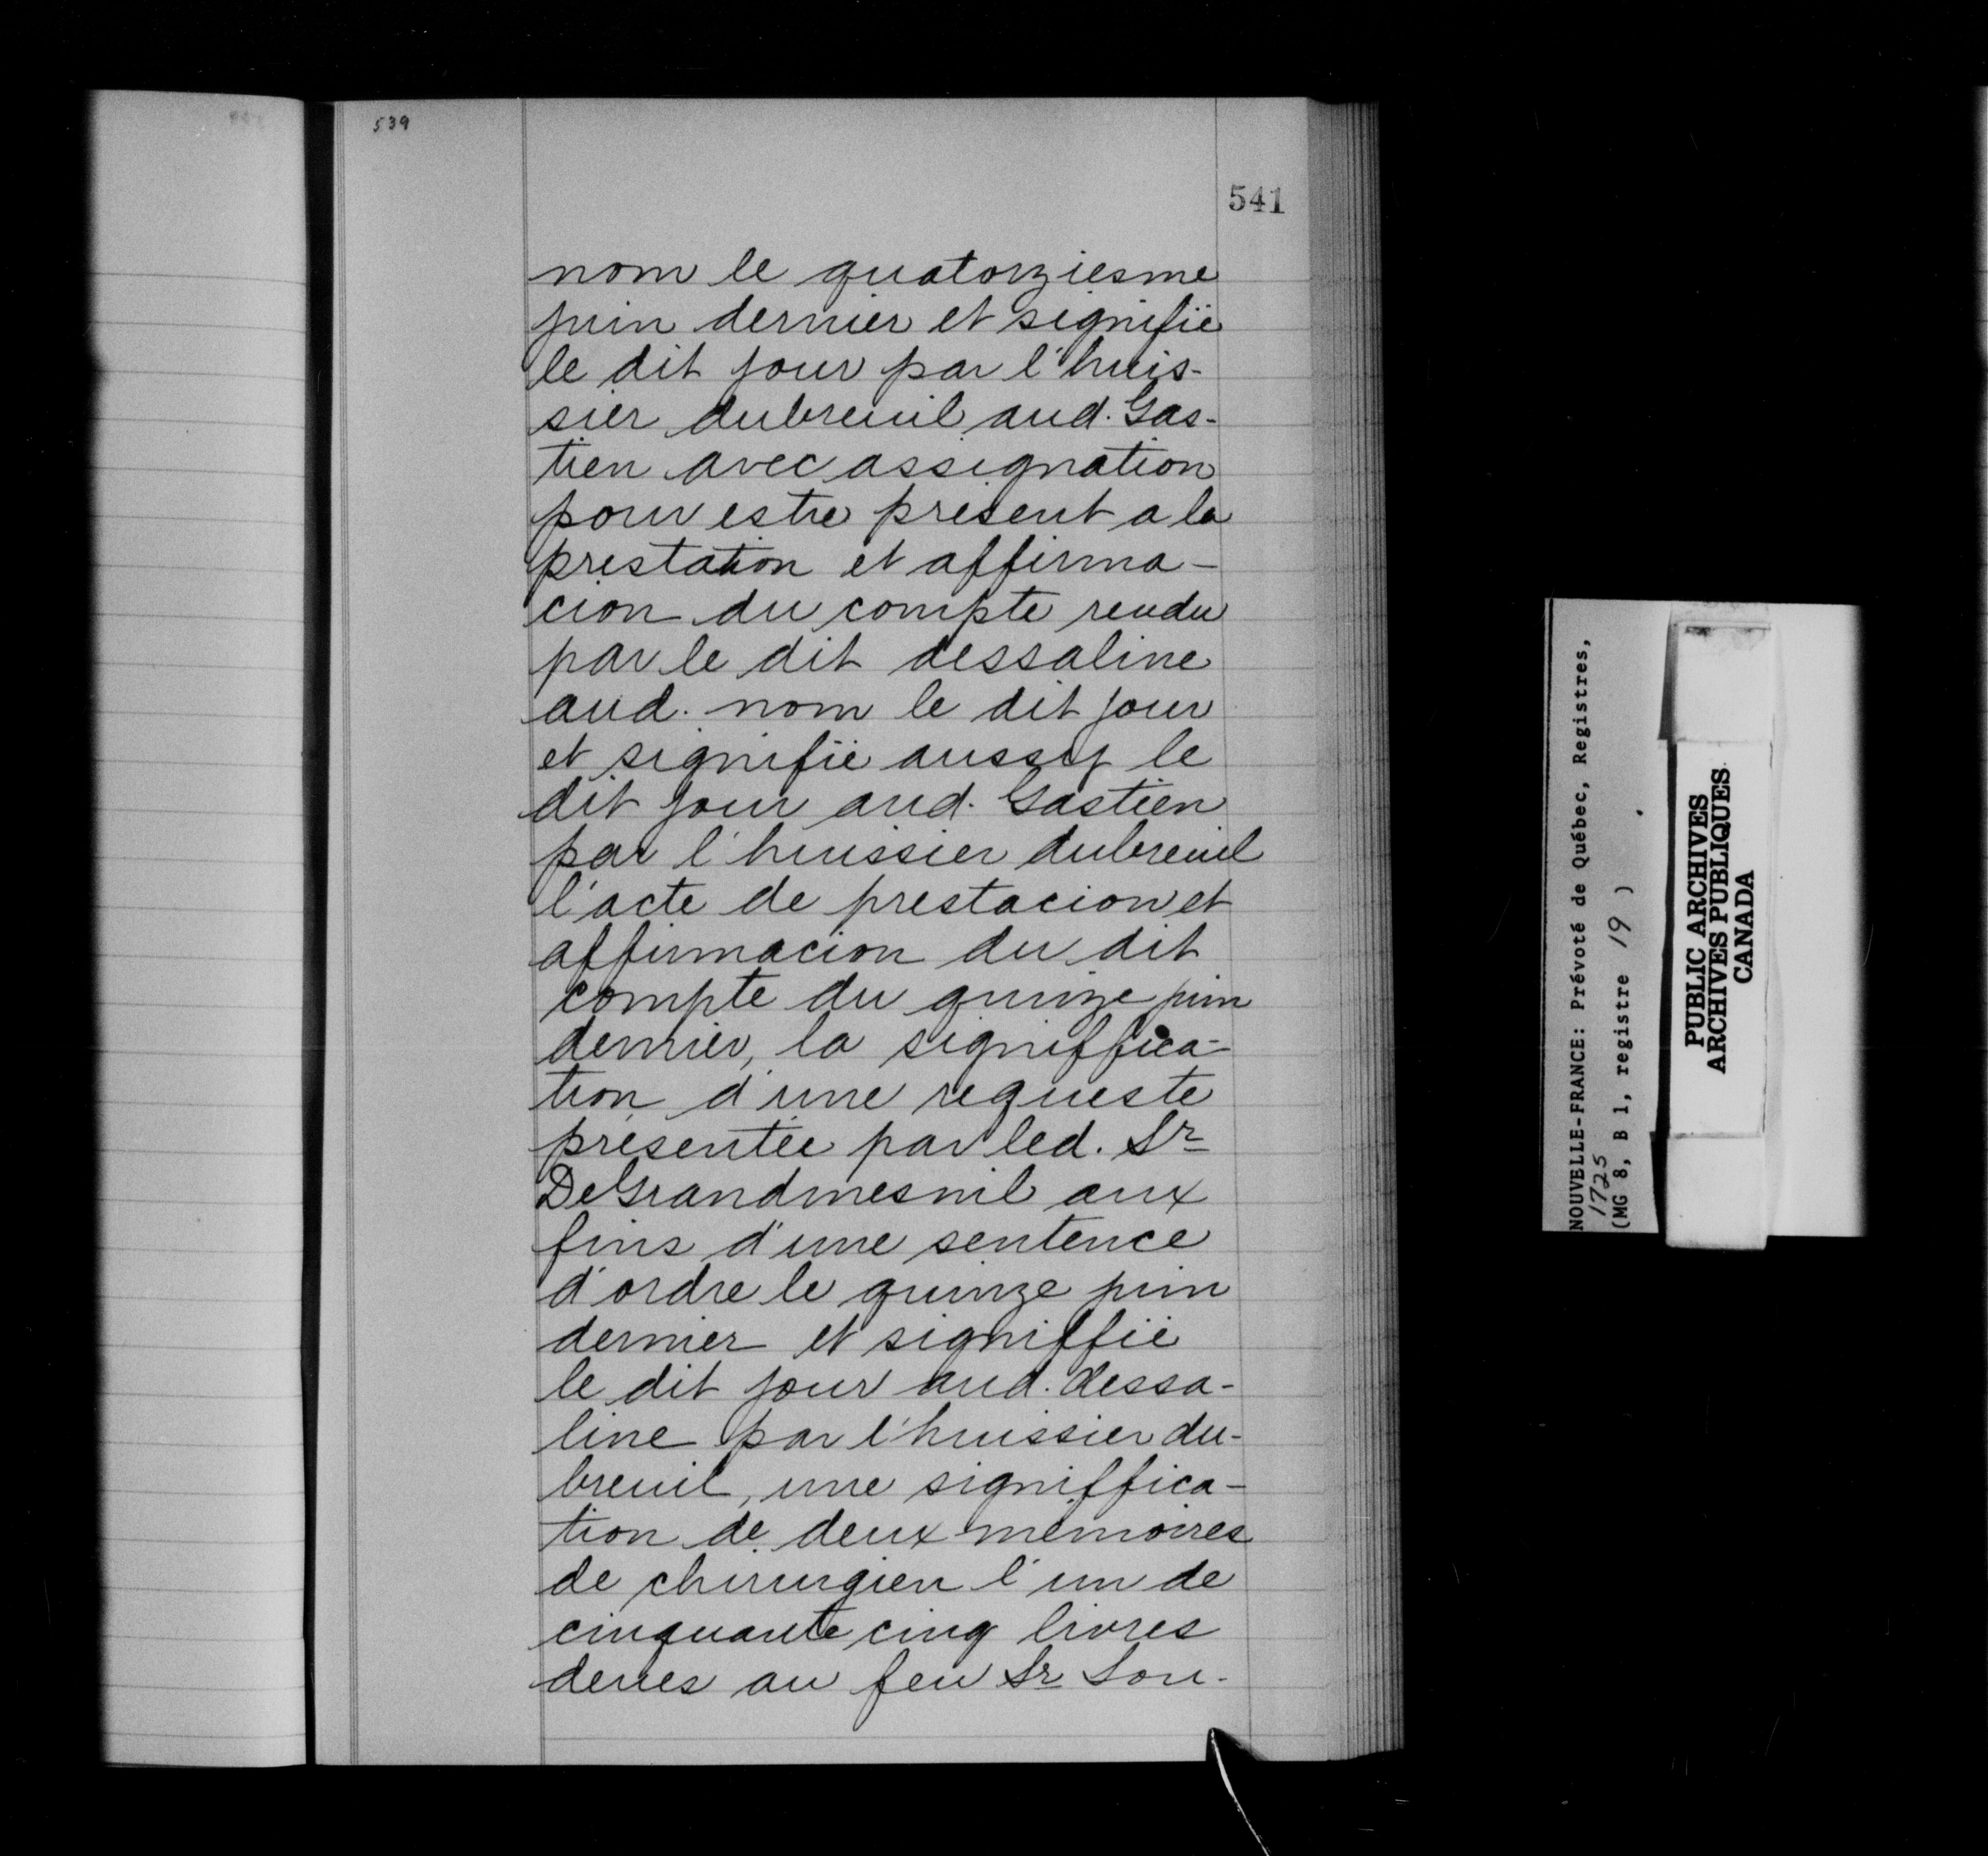 539
541
nom le quatorziesme
juin dernier et signifié
le dit jour par l'huis-
sier dubreuil aud. Gas-
tien avec assignation
pour estre présent a la
prestation et affirma-
cion du compte rendu
par le dit dessaline
aud. nom le dit jour
et signifié aussy le
dit jour aud. Gastien
par l'huissier dubreuil
l'acte de prestacion et
affirmacion du dit
compte du quinze juin
dernier, la signiffica-
tion d'une requeste
présentée par led. Sr
De Grandmesnil aux
fins d'une sentence
d'ordre le quinze juin
dernier et signiffié
le dit jour aud. dessa-
line par l'huissier du-
breuil, une signiffica-
tion de deux mémoires
de chirurgien l'un de
cinquante cinq livres
deues au feu Sr Sou-
NOUVELLE-FRANCE: Prévoté de Québec, Registres,
1725
(MG 8, B 1, registre 19 )
PUBLIC ARCHIVES
ARCHIVES PUBLIQUES
CANADA